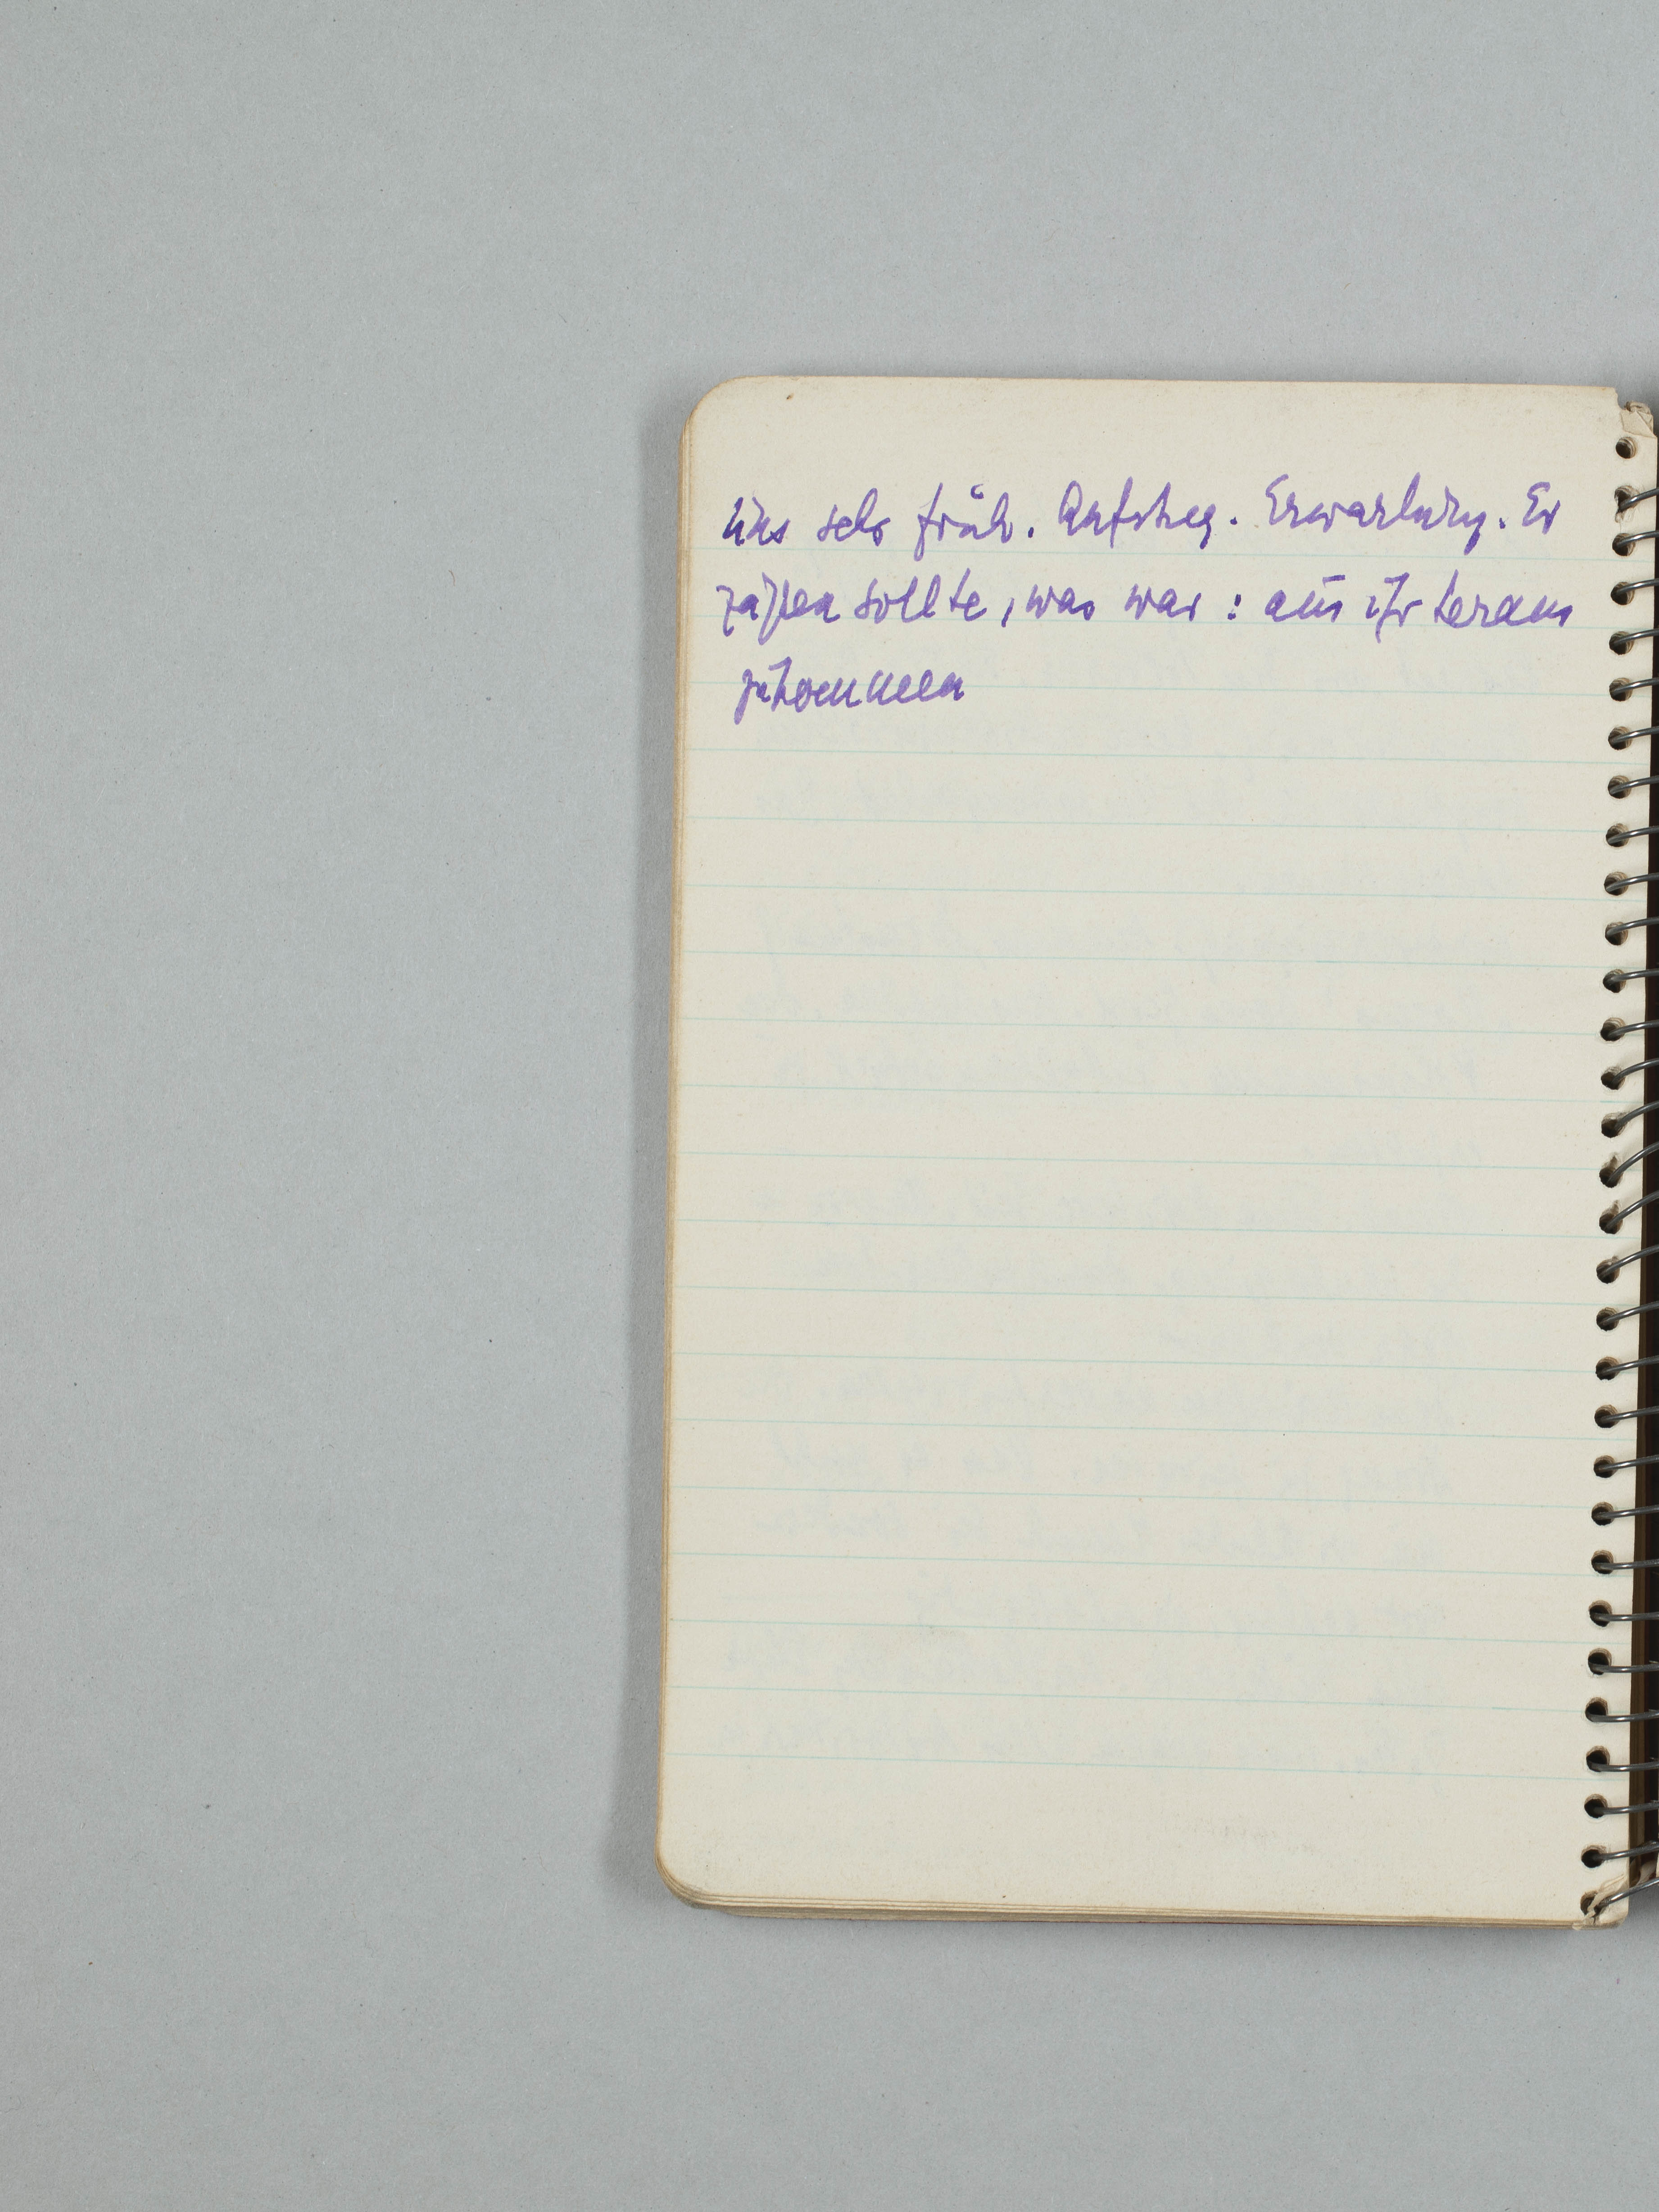 uns sehr früh. Aufstieg. Erwartung. Er
zählen sollte, was war: aus ihr heraus
zukommen